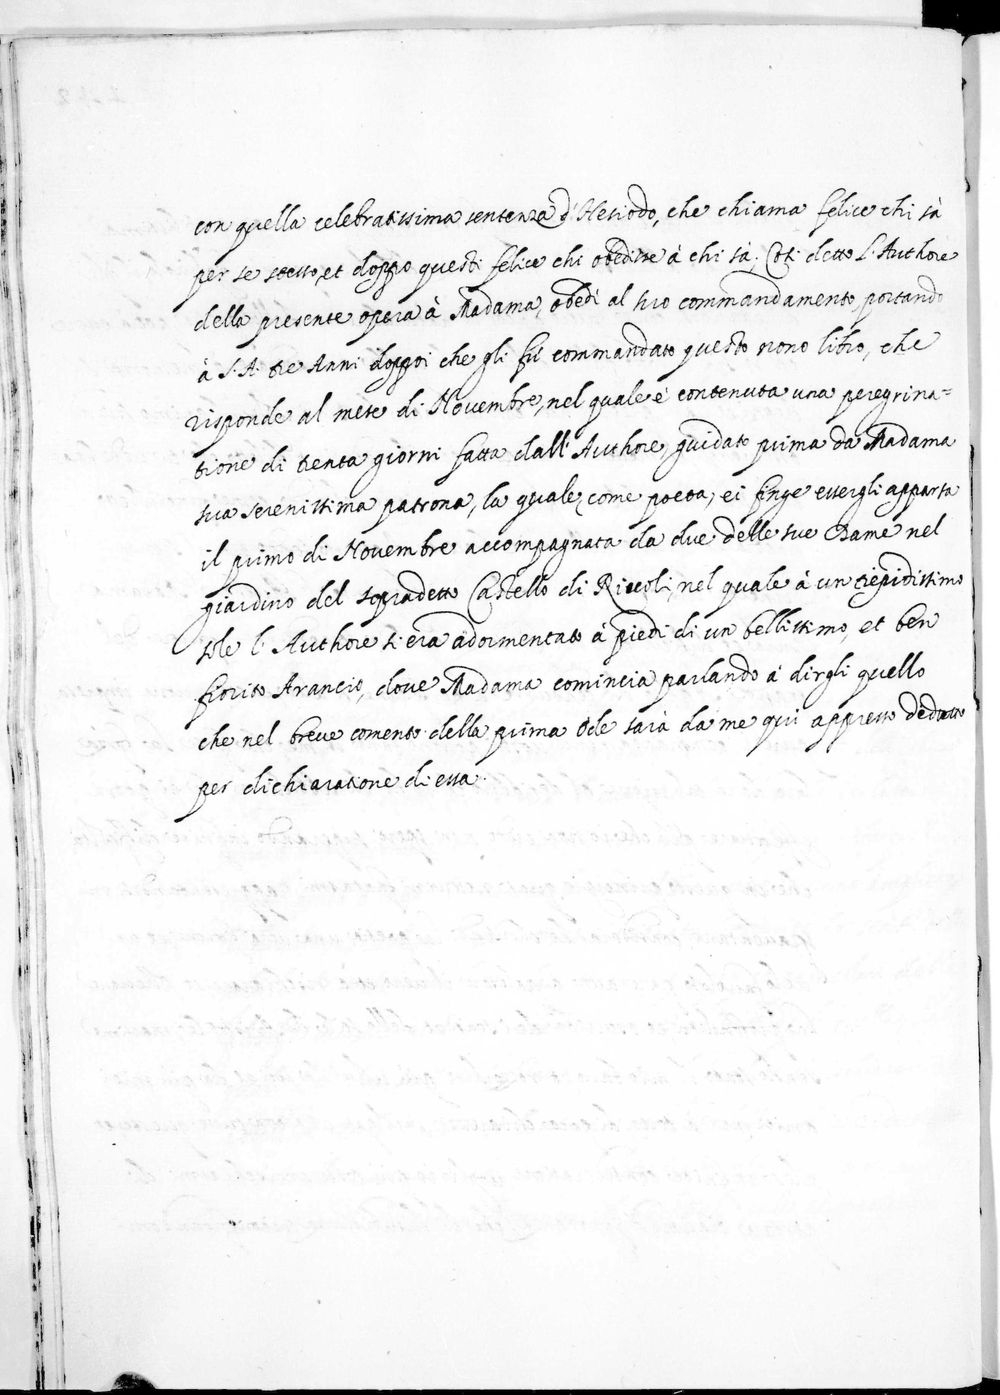 con quella celebratissima sentenza d'Hesiodo, che chiama felice chi sà
per se stesso, et doppo questi felice chi obedisse à chi sà; Così detto l'Authore
della presente opera à Madama, obedì al suo commandamento, portando
à S. A. tre Anni doppoi che gli fù commandato questo nono libro, che
risponde al mese di Novembre, nel quale è contenuta una peregrina=
tione di trenta giorni fatta dall'Authore, guidato prima da Madama
sua serenissima patrona, la quale, come poeta, ei finge essergli apparsa
il primo di Novembre accompagnata da due delle sue Dame nel
giardino del sopradetto Castello di Rivoli, nel quale à un tiepidissimo
sole l'Authore s'era adormentato à piedi di un bellissimo, et ben
fiorito Arancio, dove Madama comincia parlando à dirgli quello
che nel breve comento della prima Ode sarà da me qui appresso dedutto
per dichiaratione di essa.